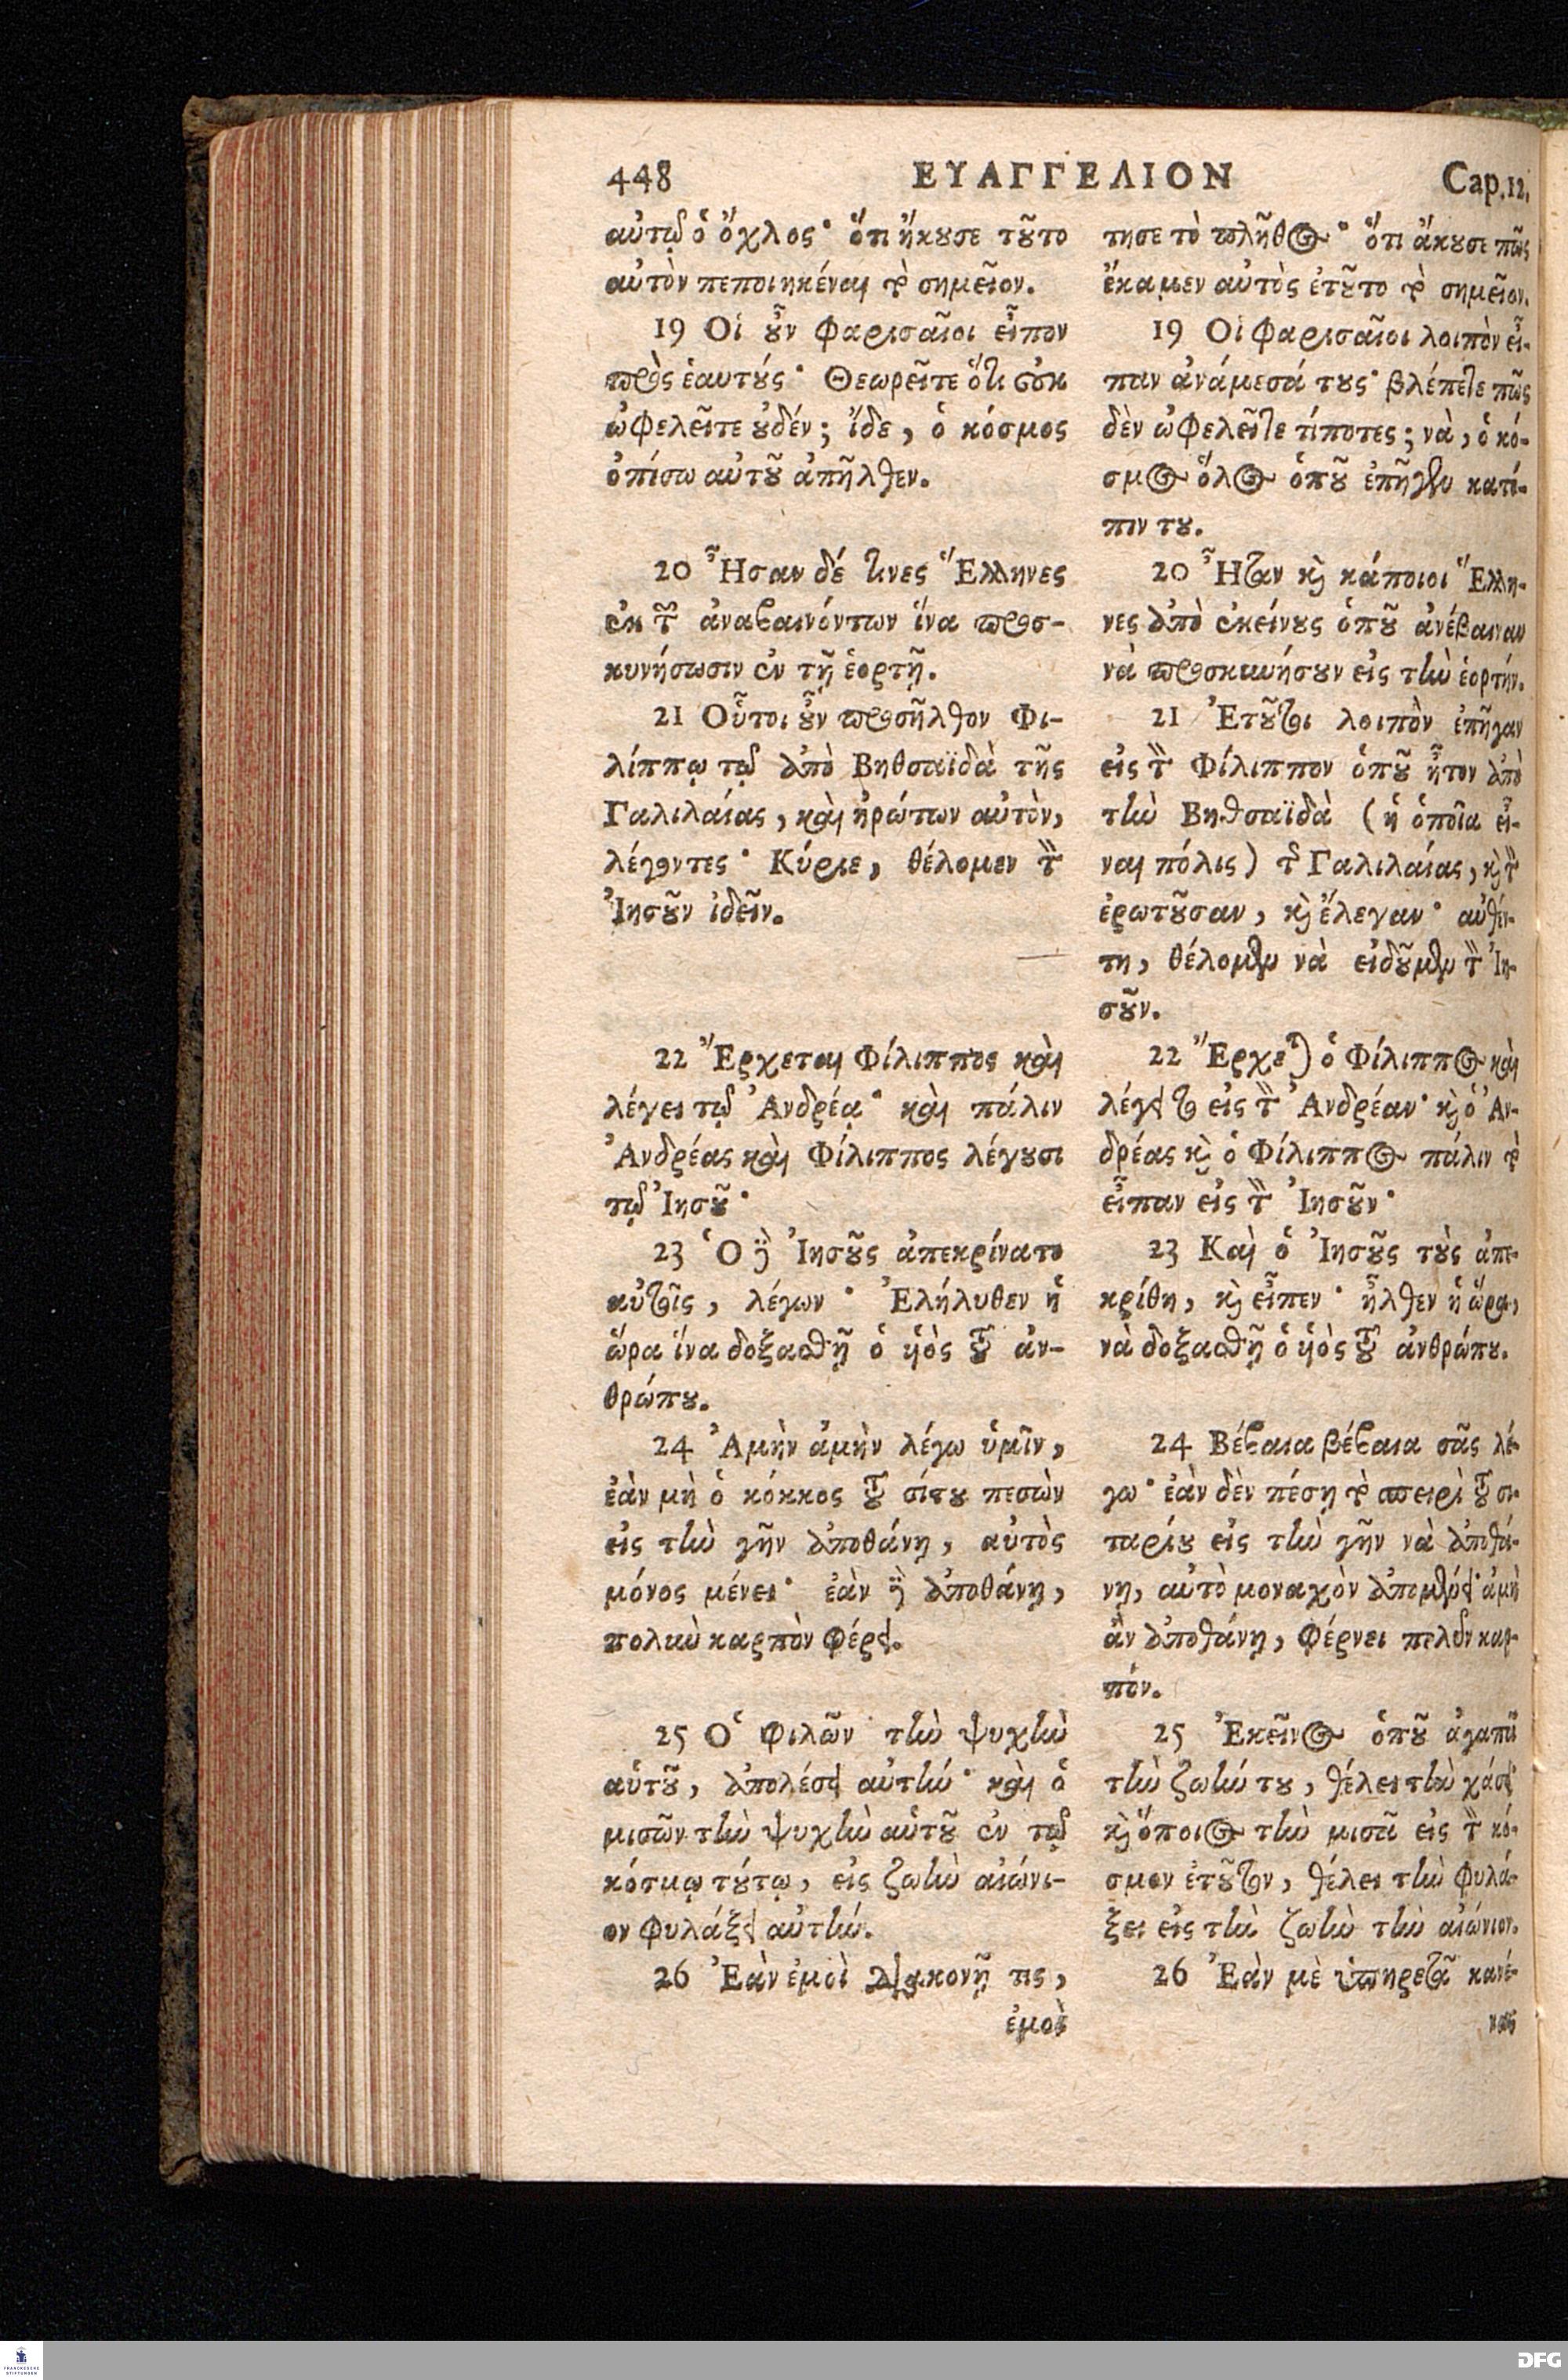 448 ΕΥΑΓΓΕΛΙΟΝ Cap.12.
αὐτῷ ὁ ὄχλος· ὅτι ἤκȣσε τȣ͂το
αὐτὸν πεποιηκέναι τὸ σημεῖον.
19 Οἱ ȣ῏ν Φαρισαῖοι εἶπον
πρὸς ἑαυτȣ́ς· Θεωρεῖτε ὅτι οὐκ
ὠφελεῖτε ȣ᾿δέν; ἴδε, ὁ κόσμος
ὀπίσω αὐτȣ͂ ἀπῆλθεν.
20 Ἦσαν δέ τινες Ἕλληνες
ἐκ τῶν ἀναβαινόντων ἵνα προσ-
κυνήσωσιν ἐν τῇ ἑορτῇ.
21 Οὗτοι ȣ῏ν προσῆλθον Φι-
λίππῳ τῷ ἀπὸ Βηθσαϊδὰ τῆς
Γαλιλαίας, καὶ ἠρώτων αὐτὸν,
λέγοντες· Κύριε, θέλομεν τὸν
Ἰησȣ͂ν ἰδεῖν.
22 Ἔρχεται Φίλιππος καὶ
λέγει τῷ Ἀνδρέᾳ· καὶ πάλιν
Ἀνδρέας καὶ Φίλιππος λέγȣσι
τῷ Ἰησȣ͂·
23 Ὁ δὲ Ἰησȣ͂ς ἀπεκρίνατο
αὐτοῖς, λέγων· Ἐλήλυθεν ἡ
ὥρα ἵνα δοξασθῇ ὁ υἱὸς τȣ͂ ἀν-
θρώπȣ.
24 Ἀμὴν ἀμὴν λέγω ὑμῖν,
ἐὰν μὴ ὁ κόκκος τȣ͂ σίτȣ πεσὼν
εἰς τὴν γῆν ἀποθάνῃ, αὐτὸς
μόνος μένει· ἐὰν δὲ ἀποθάνῃ,
πολὺν καρπὸν φέρει.
25 Ὁ φιλῶν τὴν ψυχὴν
αὑτȣ͂, ἀπολέσει αὐτήν· καὶ ὁ
μισῶν τὴν ψυχὴν αὑτȣ͂ ἐν τῷ
κόσμῳ τȣ́τῳ, εἰς ζωὴν αἰώνι-
ον φυλάξει αὐτήν.
26 Ἐὰν ἐμοὶ διακονῇ τις,
ἐμοὶ
τησε τὸ πλῆθος· ὅτι ἄκȣσε πῶς
ἔκαμεν αὐτὸς ἐτȣ͂το τὸ σημεῖον.
19 Οἱ φαρισαῖοι λοιπὸν εἶ-
παν ἀνάμεσά τȣς· βλέπετε πῶς
δὲν ὠφελεῖτε τίποτες; νὰ, ὁ κό-
σμος ὅλος ὁπȣ͂ ἐπῆγεν κατό-
πιν τȣ.
20 Ἦταν καὶ κάποιοι Ἕλλη-
νες ἀπὸ ἐκείνȣς ὁπȣ͂ ἀνέβαιναν
νὰ προσκυνήσȣν εἰς τὴν ἑορτήν.
21 Ἐτȣ͂τοι λοιπὸν ἐπῆγαν
εἰς τὸν Φίλιππον ὁπȣ͂ ἦτον ἀπὸ
τὴν Βηθσαϊδὰ (ἡ ὁποῖα εἶ-
ναι πόλις) τῆς Γαλιλαίας, καὶ τὸν
ἐρωτȣ͂σαν, καὶ ἔλεγαν· αὐθέν-
τη, θέλομεν νὰ εἰδȣ͂μεν τὸν Ἰη-
σȣ͂ν.
22 Ἔρχεται ὁ Φίλιππος καὶ
λέγει το εἰς τὸν Ἀνδρέαν· καὶ ὁ Ἀν-
δρέας καὶ ὁ Φίλιππος πάλιν τὸ
εἶπαν εἰς τὸν Ἰησȣ͂ν·
23 Καὶ ὁ Ἰησȣ͂ς τȣ̀ς ἀπε-
κρίθη, καὶ εἶπεν· ἦλθεν ἡ ὥρα,
νὰ δοξασθῇ ὁ υἱὸς τȣ͂ ἀνθρώπȣ.
24 Βέβαια βέβαια σᾶς λέ-
γω· ἐὰν δὲν πέσῃ τὸ σπειρὶ τȣ͂ σι-
ταρίȣ εἰς τὴν γῆν νὰ ἀποθά-
νῃ, αὐτὸ μοναχὸν ἀπομένει· ἀμὴ
ἂν ἀποθάνῃ, φέρνει πολὺν καρ-
πόν.
25 Ἐκεῖνος ὁπȣ͂ ἀγαπᾷ
τὴν ζωήν τȣ, θέλει τὴν χάσει·
καὶ ὅποιος τὴν μισᾷ εἰς τὸν κό-
σμον ἐτȣ͂τον, θέλει τὴν φυλά-
ξει εἰς τὴν ζωὴν τὴν αἰώνιον.
26 Ἐὰν μὲ ὑπηρετᾷ κανέ-
νας
FRANCKESCHE
STIFTUNGEN
DFG